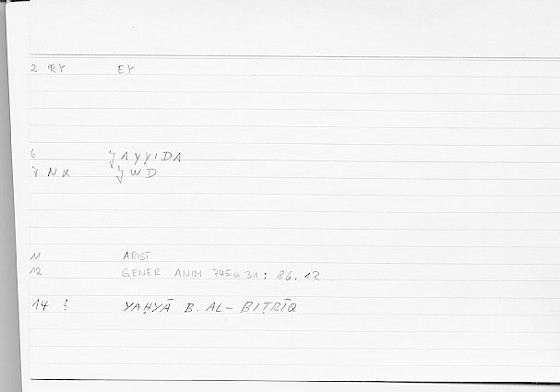 2 RY EY
6 ǰAYYIDA
7 NK ǰWD
11 ARIST
12 GENER ANIM 745a31: 86.12
14 : YAḤYĀ B. AL-BIṬRĪQ